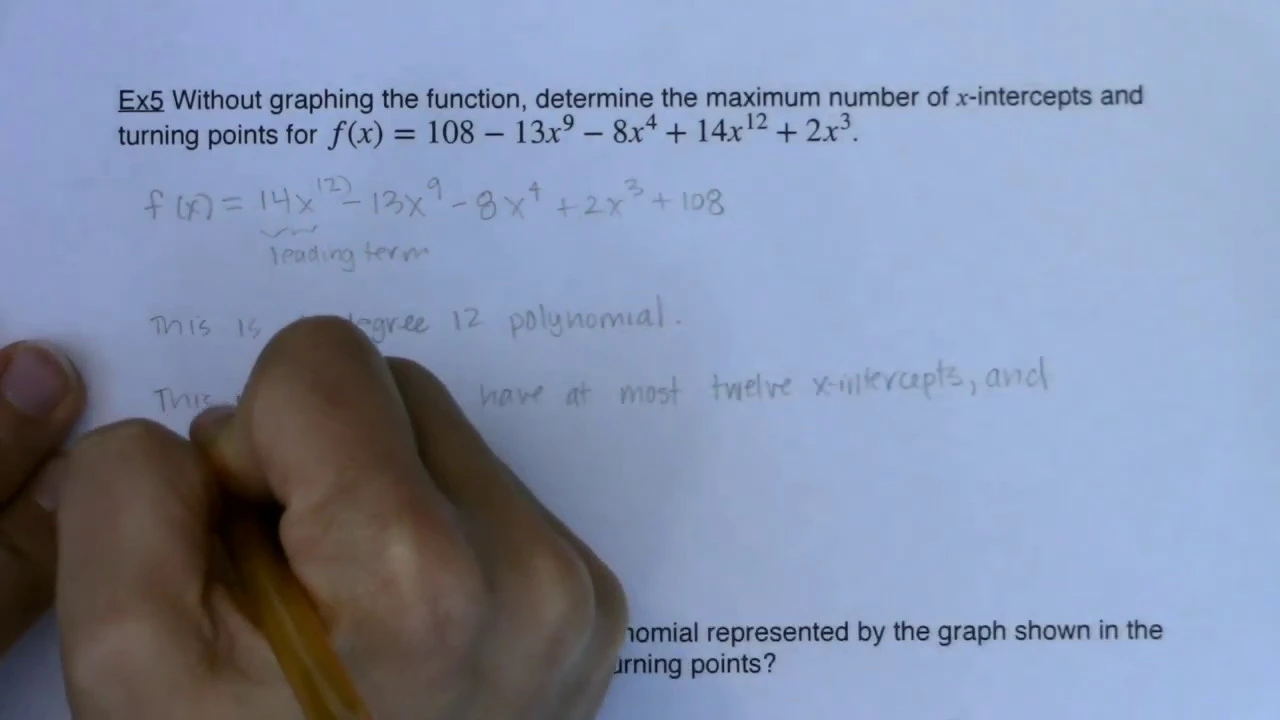 Ex5 Without graphing the function, determine the maximum number of x-intercepts and
turning points for f(x) = 108 − 13x⁹ − 8x⁴ + 14x¹² + 2x³.
f(x) = 14x¹² − 13x⁹ − 8x⁴ + 2x³ + 108
leading term
This is degree 12 polynomial.
This have at most twelve x-intercepts, and
represented by the graph shown in the
points?